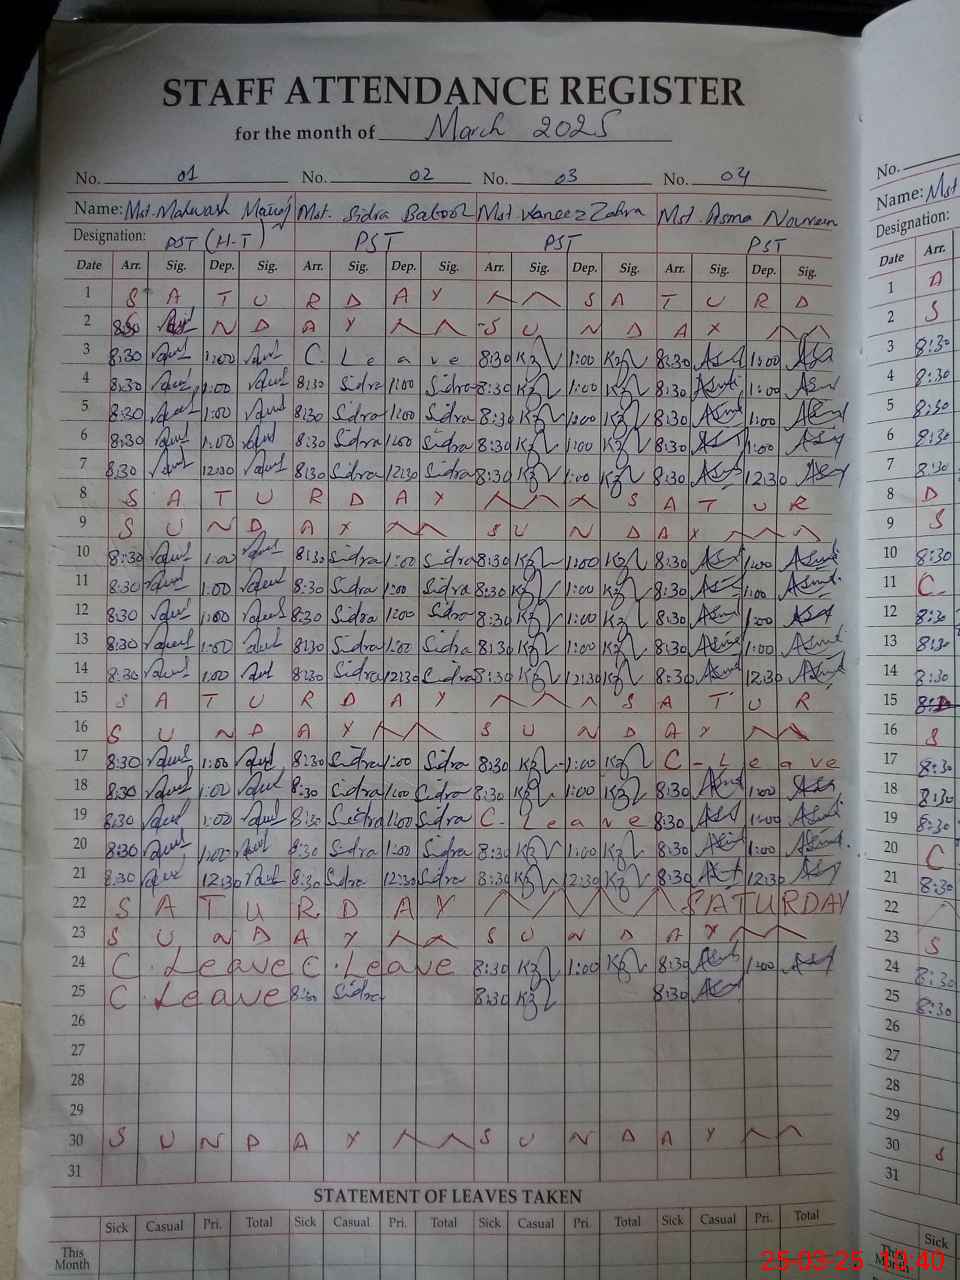 STAFF ATTENDANCE REGISTER
for the month of March 2025
No. 01 No. 02 No. 03 No. 04 No.
Name: Mst. Mahwash Mst. Sidra Batool Mst Kaneez Zahra Mst. Asma Noureen Name: Mst
Designation: PST (H-T) PST PST PST Designation:
Date Arr. Sig. Dep. Sig. Arr. Sig. Dep. Sig. Arr. Sig. Dep. Sig. Arr. Sig. Dep. Sig. Date Arr.
1 S A T U R D A Y S A T U R D 1
2 N D A Y S U N D A Y 2 S
3 8:30 1:00 C. Leave 8:30 1:00 8:30 1:00 3 8:30
4 8:30 1:00 8:30 Sidra 1:00 Sidra 8:30 1:00 8:30 1:00 4 8:30
5 8:30 1:00 8:30 Sidra 1:00 Sidra 8:30 1:00 8:30 1:00 5 8:30
6 8:30 1:00 8:30 Sidra 1:00 Sidra 8:30 1:00 8:30 1:00 6 8:30
7 8:30 12:30 8:30 Sidra 12:30 Sidra 8:30 1:00 8:30 12:30 7 8:30
8 S A T U R D A Y S A T U R 8 D
9 S U N D A Y S U N D A Y 9 S
10 8:30 1:00 8:30 Sidra 1:00 Sidra 8:30 1:00 8:30 1:00 10 8:30
11 8:30 1:00 8:30 Sidra 1:00 Sidra 8:30 1:00 8:30 1:00 11 C-
12 8:30 1:00 8:30 Sidra 1:00 Sidra 8:30 1:00 8:30 1:00 12 8:30
13 8:30 1:00 8:30 Sidra 1:00 Sidra 8:30 1:00 8:30 1:00 13 8:30
14 8:30 1:00 8:30 Sidra 12:30 Sidra 8:30 12:30 8:30 12:30 14 8:30
15 S A T U R D A Y S A T U R 15
16 S U N D A Y S U N D A Y 16 S
17 8:30 1:00 8:30 Sidra 1:00 Sidra 8:30 1:00 C-Leave 17 8:30
18 8:30 1:00 8:30 Sidra 1:00 Sidra 8:30 1:00 8:30 1:00 18 8:30
19 8:30 1:00 8:30 Sidra 1:00 Sidra C-Leave 8:30 1:00 19 8:30
20 8:30 1:00 8:30 Sidra 1:00 Sidra 8:30 1:00 8:30 1:00 20 C
21 8:30 12:30 8:30 Sidra 12:30 Sidra 8:30 12:30 8:30 12:30 21 8:30
22 S A T U R D A Y SATURDAY 22
23 S U N D A Y S U N D A Y 23 S
24 C.Leave C.Leave 8:30 1:00 8:30 1:00 24 8:30
25 C.Leave 8:30 Sidra 8:30 8:30 25 8:30
26 26
27 27
28 28
29 29
30 S U N D A Y S U N D A Y 30 S
31 31
STATEMENT OF LEAVES TAKEN
Sick Casual Pri. Total Sick Casual Pri. Total Sick Casual Pri. Total Sick Casual Pri. Total Sick
This Month
25-03-25 10:40